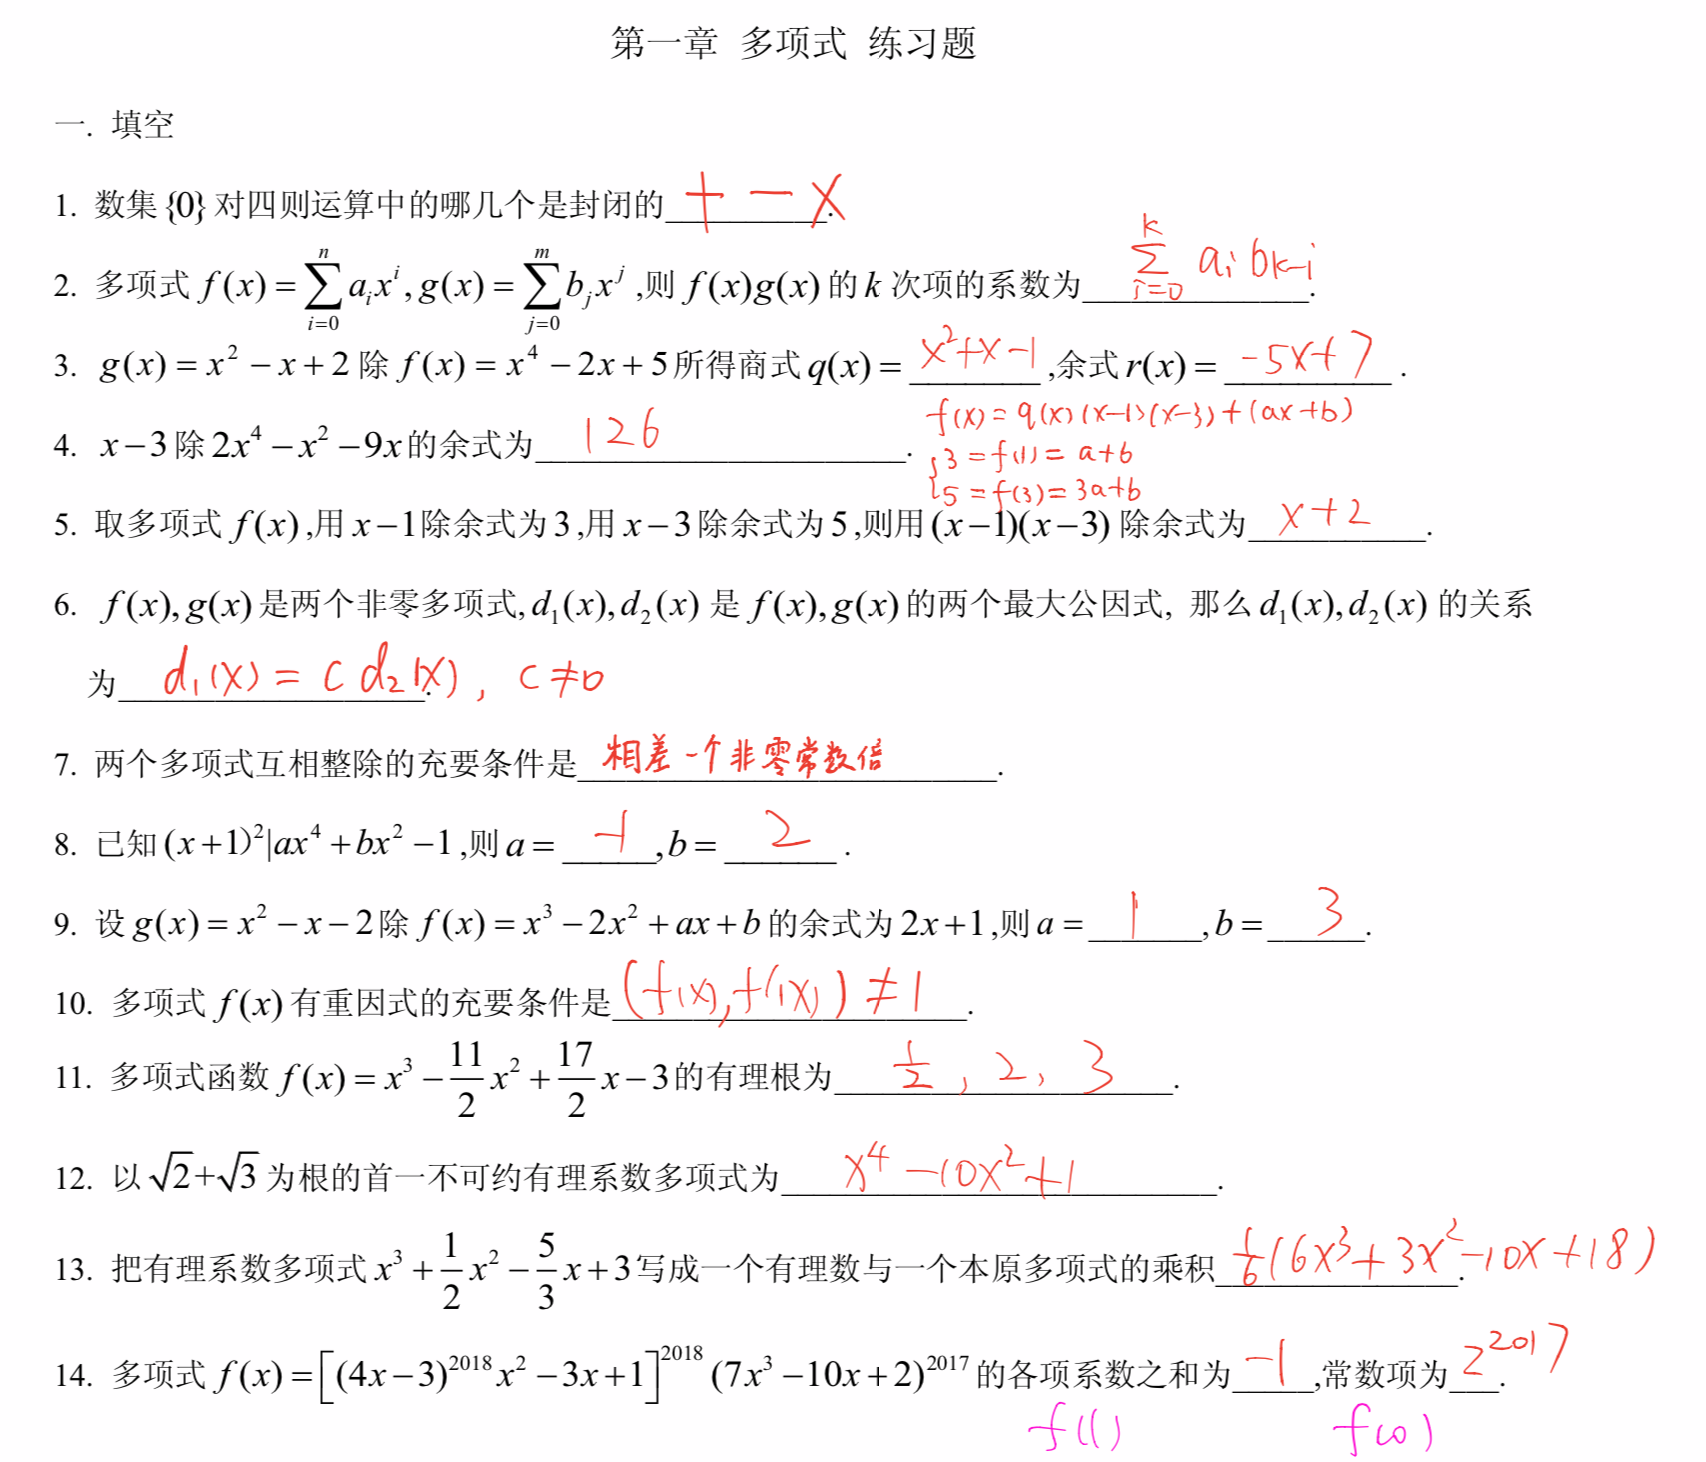 第一章 多项式 练习题
一. 填空
1. 数集{0}对四则运算中的哪几个是封闭的 + − × .
2. 多项式 f(x)=∑_{i=0}^{n} a_i x^i, g(x)=∑_{j=0}^{m} b_j x^j ,则 f(x)g(x) 的 k 次项的系数为 ∑_{i=0}^{k} a_i b_{k-i} .
3. g(x)=x²−x+2 除 f(x)=x⁴−2x+5 所得商式 q(x)= x²+x−1 ,余式 r(x)= −5x+7 .
f(x)=q(x)(x−1)(x−3)+(ax+b)
4. x−3 除 2x⁴−x²−9x 的余式为 126 .
{3=f(1)=a+b
5=f(3)=3a+b
5. 取多项式 f(x),用 x−1 除余式为 3,用 x−3 除余式为 5,则用 (x−1)(x−3) 除余式为 x+2 .
6. f(x),g(x) 是两个非零多项式, d₁(x),d₂(x) 是 f(x),g(x) 的两个最大公因式, 那么 d₁(x),d₂(x) 的关系
为 d₁(x)=c d₂(x), c≠0 .
7. 两个多项式互相整除的充要条件是 相差一个非零常数倍 .
8. 已知 (x+1)²|ax⁴+bx²−1 ,则 a= −1 ,b= 2 .
9. 设 g(x)=x²−x−2 除 f(x)=x³−2x²+ax+b 的余式为 2x+1 ,则 a= 1 ,b= 3 .
10. 多项式 f(x) 有重因式的充要条件是 (f(x),f′(x))≠1 .
11. 多项式函数 f(x)=x³−11/2x²+17/2x−3 的有理根为 1/2, 2, 3 .
12. 以 √2+√3 为根的首一不可约有理系数多项式为 x⁴−10x²+1 .
13. 把有理系数多项式 x³+1/2x²−5/3x+3 写成一个有理数与一个本原多项式的乘积 1/6(6x³+3x²−10x+18) .
14. 多项式 f(x)=[(4x−3)²⁰¹⁸x²−3x+1]²⁰¹⁸(7x³−10x+2)²⁰¹⁷ 的各项系数之和为 −1 ,常数项为 2²⁰¹⁷ .
f(1) f(0)